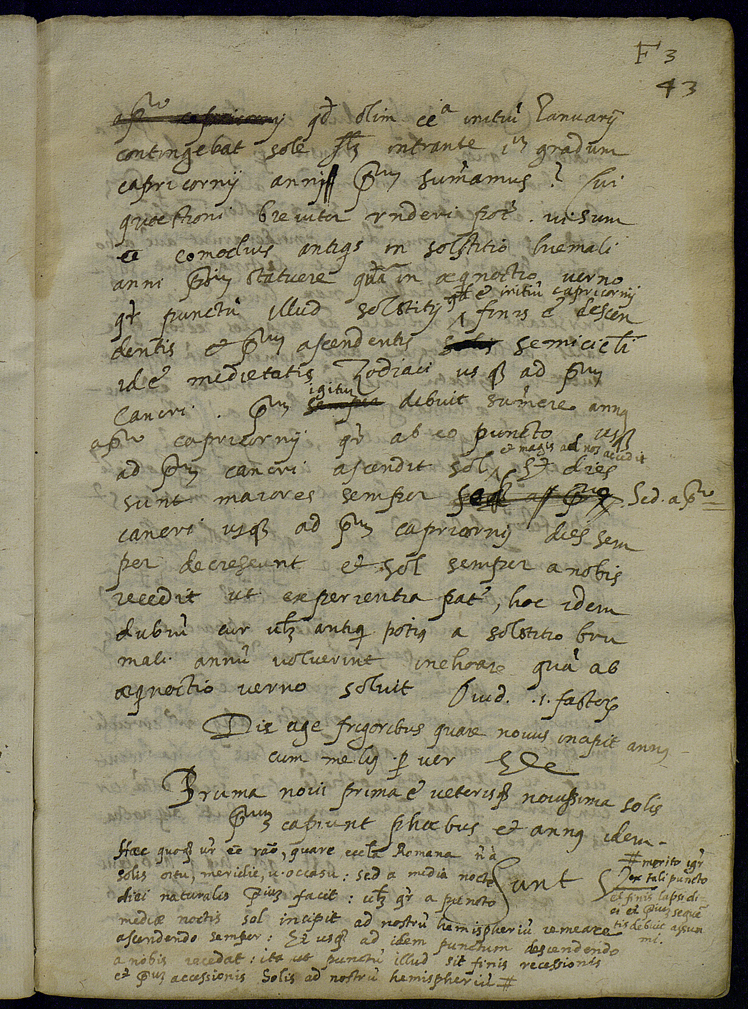 F 3
43
qd olim eēᵃ initiū Ianuarij
contingebat sole sꝫ intrante iᵘᵐ gradum
capricornij anni pᵘᵐ sumamus? Cui
quaestioni breviter rnderi pot. visum
eē comodius antiqs in solstitio hiemali
anni pᵘᵐ statuere quā in aeqnoctio verno
qr punctū illud solstitij qd ē initiū capricornij finis ē descen
dentis et pᵘᵐ ascendentis semicirculi
id ē medietatis Zodiaci usqꝫ ad pᵘᵐ
Cancri. pᵘᵐ igitur debuit sumere annꝰ
a pᵒ capricornij qr ab eo puncto usqꝫ
ad pᵘᵐ cancri ascendit sol et magis ad nos accedit et dies
sunt maiores semper Sed a pᵒ
cancri usqꝫ ad pᵘᵐ capricornij dies sem
per decrescunt et sol semper a nobis
recedit ut experientia patꝫ, hoc idem
dubiū cur vꝫ antiqi potiꝰ a solstitio bru
mali annū voluerint inchoare quā ab
aeqnoctio verno solvit Ovid. .1. fastoꝝ
Dic age frigoribus quare novus incipit annꝰ
cum meliꝰ p ver
Bruma novi prima ē veterisqꝫ novissima solis
pᵘᵐ capiunt phoebus et annꝰ idem.
Haec quoqꝫ vr eē rāo, quare eccla Romana nō a
solis ortu, meridie, v. occasu: sed a media nocte
diei naturalis pᵘᵐ facit: vꝫ qr a puncto
Sunt
mediae noctis sol incipit ad nostrū hemispheriū remeare
ascendendo semper: Et usqꝫ ad idem punctum descendendo
a nobis recedat: ita ut punctū illud sit finis recessionis
et pᵘᵐ accessionis Solis ad nostrū hemispheriū #
# merito igr
ex tali puncto
et finis lapsi di-
ei et pᵘᵐ seque
tis debuit assum
mi.